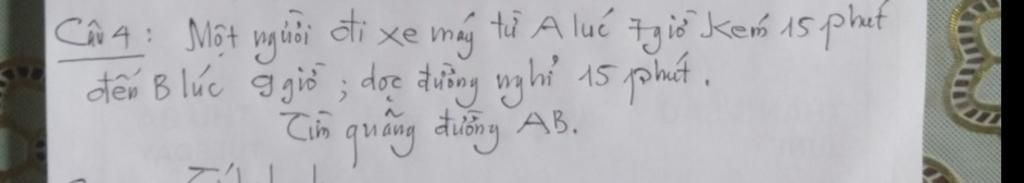 Câu 4: Một người đi xe máy từ A lúc 7 giờ kém 15 phút
đến B lúc 9 giờ; dọc đường nghỉ 15 phút.
Tìm quãng đường AB.